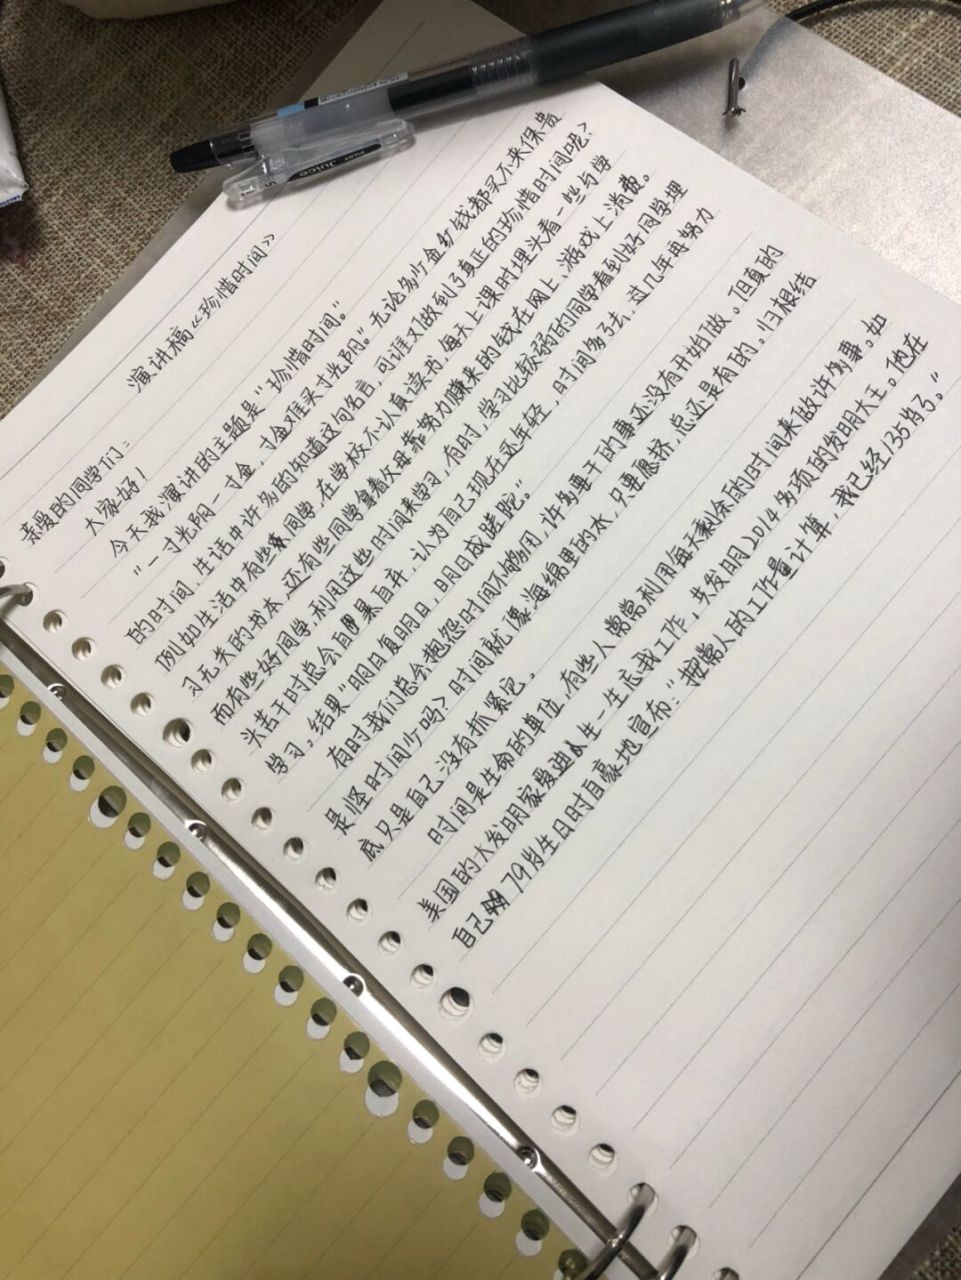 PILOT Juice
演讲稿《珍惜时间》
亲爱的同学们:
大家好!
今天我演讲的主题是"珍惜时间。"
"一寸光阴一寸金,寸金难买寸光阴。"无论多少金钞钱都买不来保贵
的时间,生话中许多的知道这句名言,可谁又做到了真正的珍惜时间呢?
例如生活中有些同学,在学校不认真读书,每天上课时埋头看一些与学
习无关的书本,还有些同学拿着父母靠努力赚来的钱在网上,游戏上消费。
而有些好同学,利用这些时间来学习,有时,学习比较弱的同学看到好同学埋
头苦干时总会自暴自弃,认为自己现在还年轻,时间多了去,过几年再努力
学习。结果"明日复明日,明日成蹉跎。"
有时我们总会抱怨时间不够用,许多要干的事还没有开始做。但真的
是怪时间少吗?时间就像海绵里的水,只要愿挤,总还是有的。归根结
底只是自己没有抓紧它。
时间是生命的单位,有些人常常利用每天剩余的时间来做许多事。如
美国的大发明家爱迪生一生忘我工作,失发明2014多项的发明大王。他在
自己79岁生日时自豪地宣布:"按常人的工作量计算,我已经135岁了。"